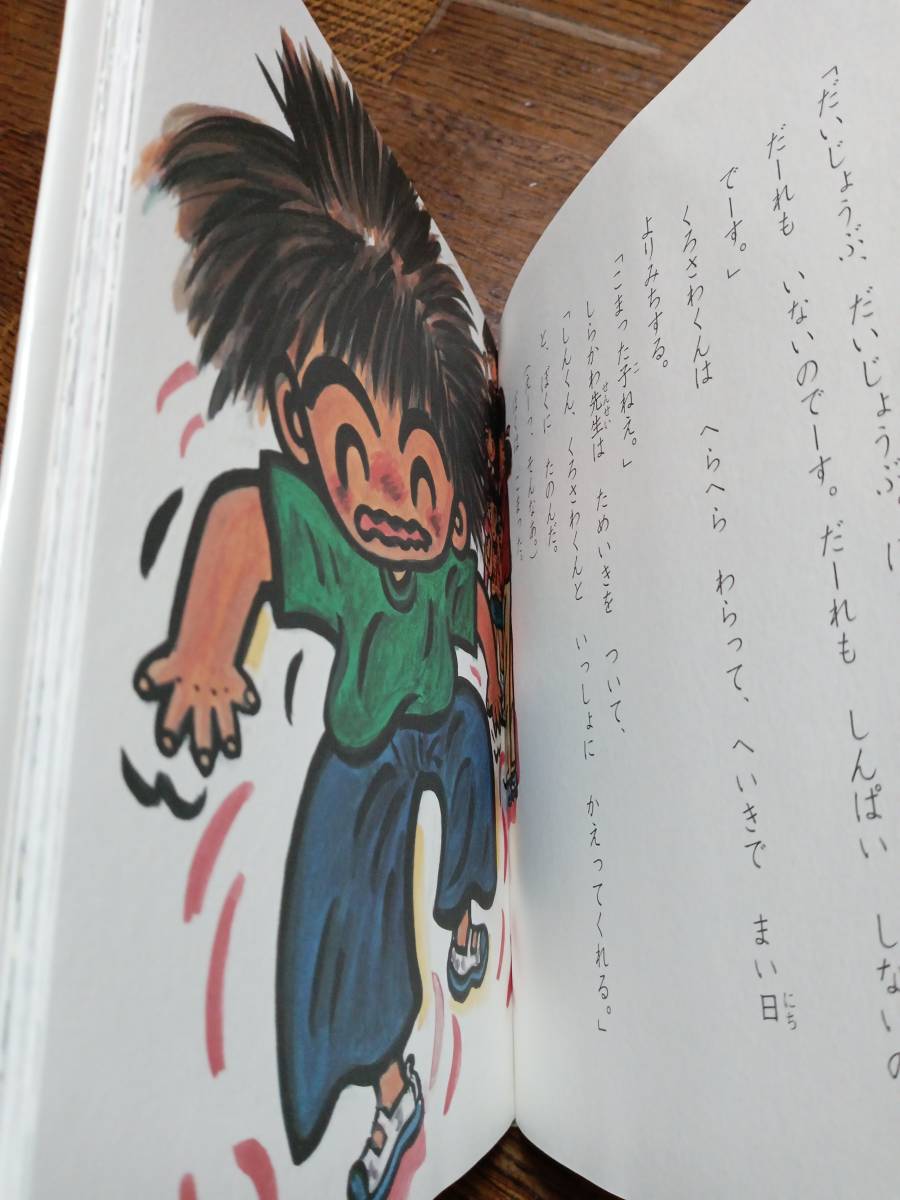 「だいじょうぶ、だいじょうぶ。
だーれも いないのでーす。だーれも しんぱい しないの
でーす。」
くろさわくんは へらへら わらって、へいきで まい日
にち
よりみちする。
「こまった子ねえ。」
こ
しらかわ先生は ためいきを ついて、
せんせい
「しんくん、くろさわくんと いっしょに かえってくれる。」
と、ぼくに たのんだ。
(えーっ、そんなあ。)